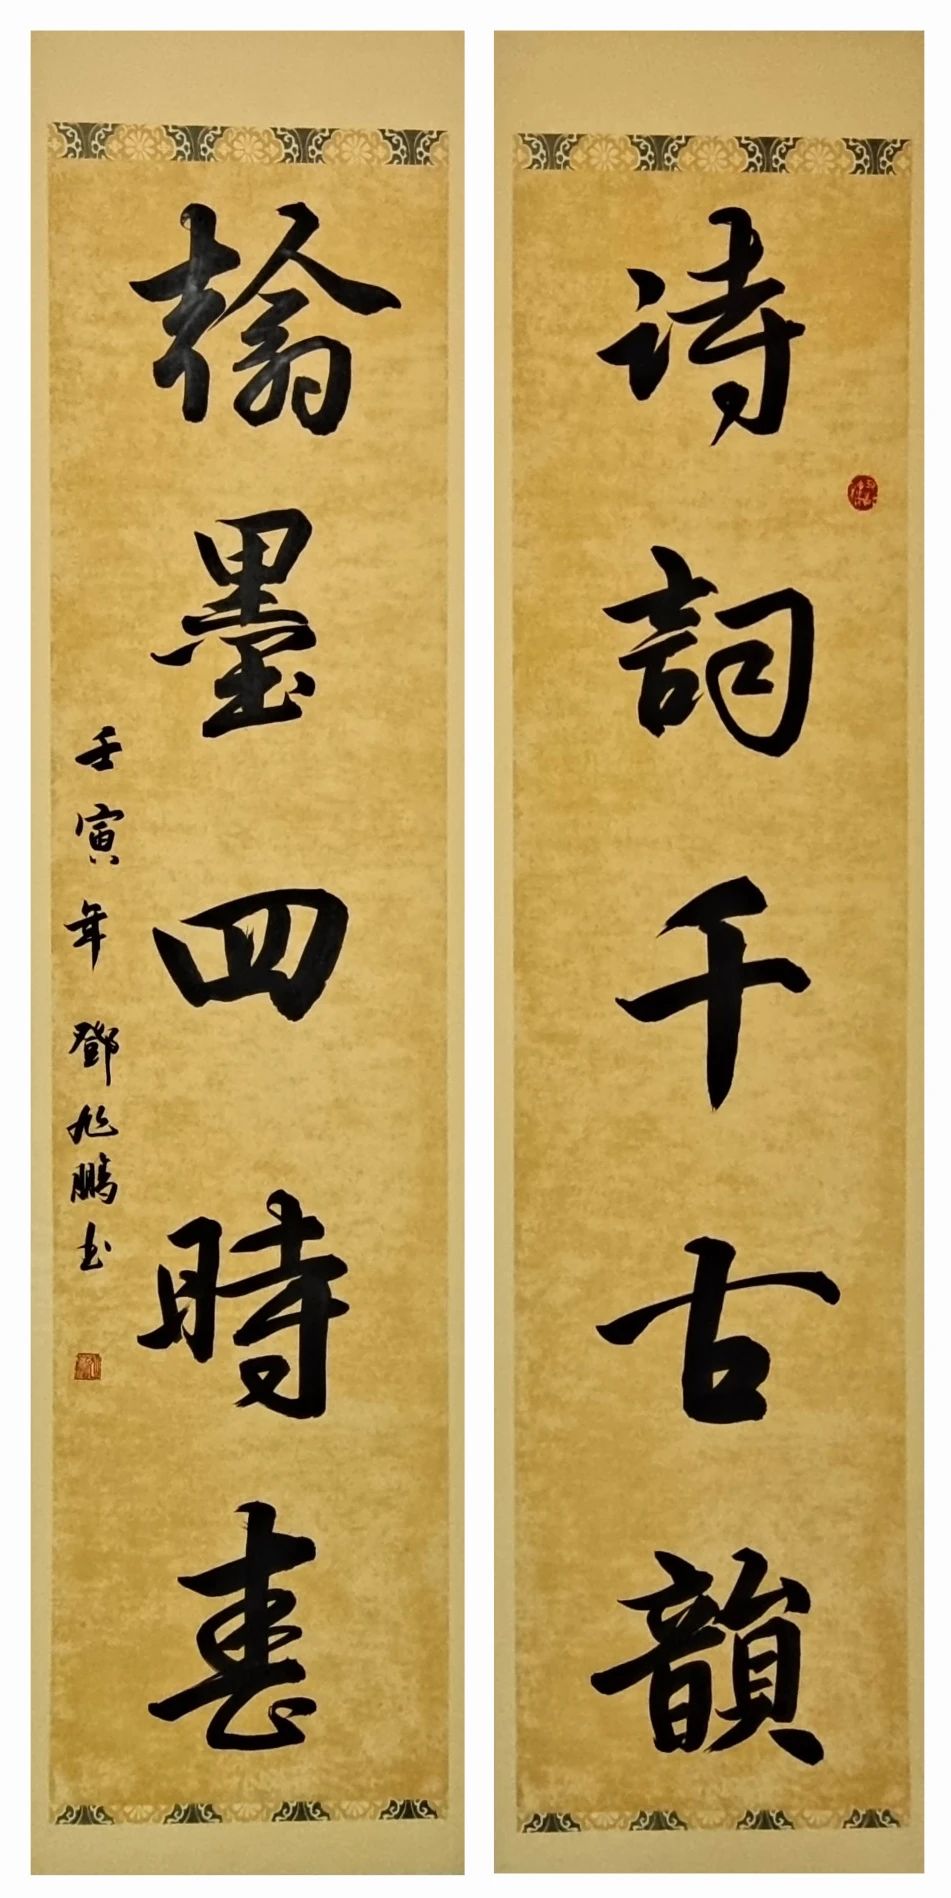 诗詞千古韻
翰墨四時春
壬寅年 鄧旭鵬书